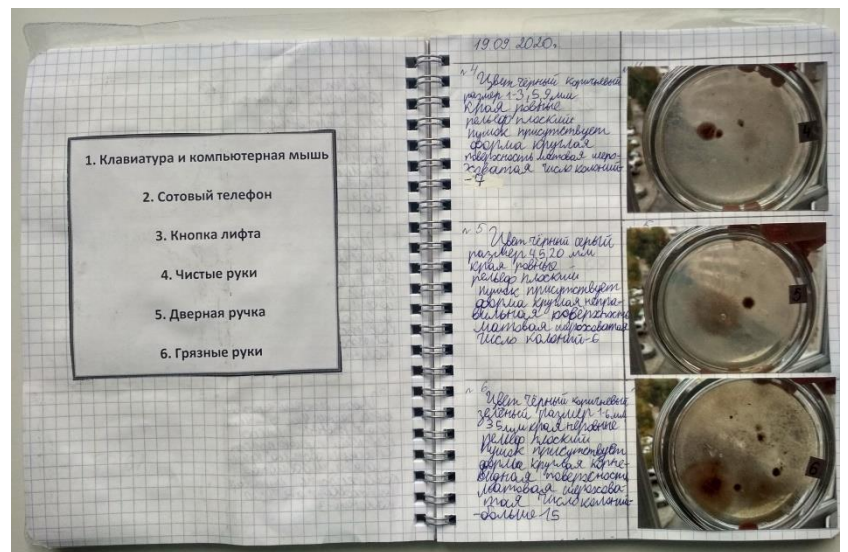 1. Клавиатура и компьютерная мышь
2. Сотовый телефон
3. Кнопка лифта
4. Чистые руки
5. Дверная ручка
6. Грязные руки
19.09.2020г.
№4
Цвет чёрный коричневый
размер 1-3,5,9 мм
края ровные
рельеф плоский
пушок присутствует
форма круглая
поверхность матовая шеро-
ховатая число колоний-
-7
4
№5
Цвет чёрный серый
размер 4,5,20 мм
края ровные
рельеф плоский
пушок присутствует
форма круглая непра-
вильная поверхность
матовая шероховатая
число колоний-6
5
№6
Цвет чёрный коричневый
зелёный размер 1-6 мм
35 мм края неровные
рельеф плоский
пушок присутствует
форма круглая корне-
видная поверхность
матовая шерохова-
тая число колоний-
-больше 15
6